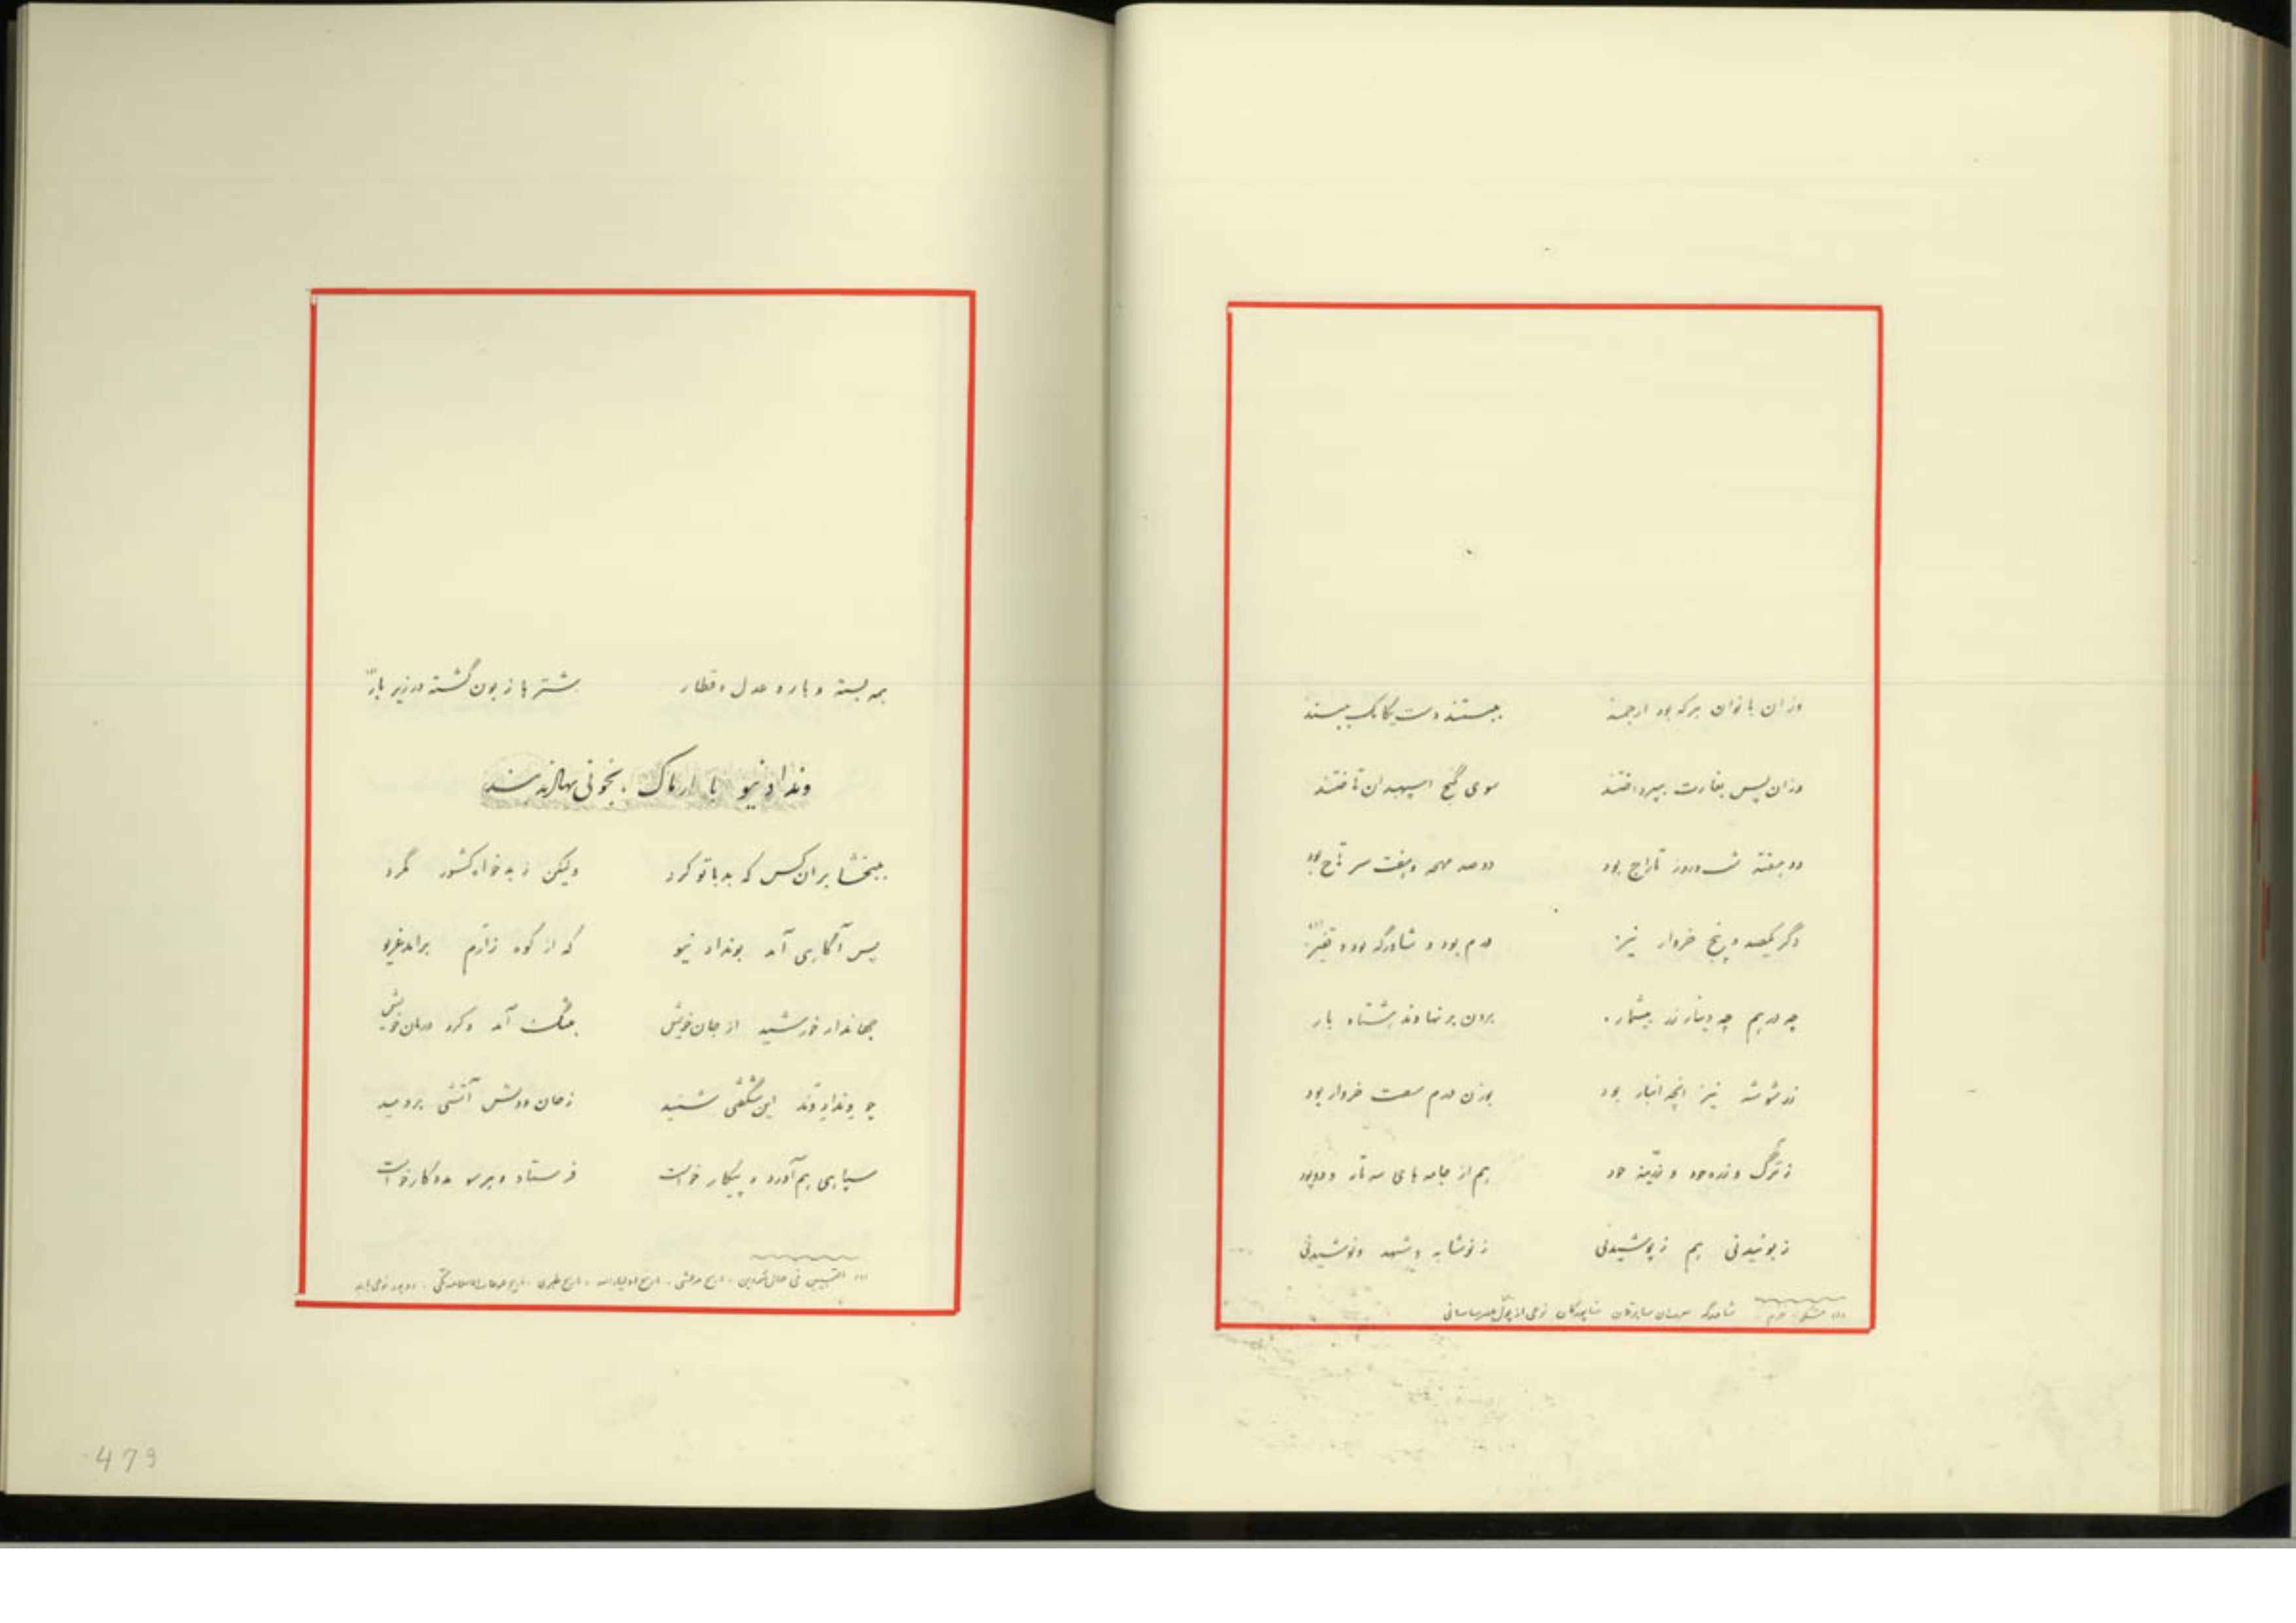 وزان بانوان هرکه بود ارجمند    ببستند دست یکایک ببند
وزان پس بغارت بپرداختند    سوی گنج اسپهبدان تاختند
دو هفته شب و روز تاراج بود    دوصد مهر و هفت سر تاج بود
دگر یکصد و پنج خروار نیز    درم بود و شاورگه بود و
چه درهم چه دینار زر بیشمار    برون بر نهادند هشتاد بار
زر شوشه نیز آنچه انبار بود    بوزن درم هفت خروار بود
ز ترگ و زره خود و زرینه خود    هم از جامه های سه تار و دو پود
ز بوئیدنی هم ز پوشیدنی    ز نوشابه و شهد و نوشیدنی
شاورگه شاپورگان نوعی از پول ساسانی
همه بسته و بار و عدل و قطار    شترها زبون گشته در زیر بار
ونداد نیو با ارماک بخونی
ببخشا بر آن کس که بد با تو کرد    ولیکن ز بدخواه کشور مگرد
پس آگاهی آمد بونداد نیو    که از کوه زارم برآمد غریو
جهاندار خورشید از جان خویش    بتنگ آمد و کرد درمان خویش
چو ونداد وند این شگفتی شنید    زمان دودش آتشی بردمید
سپاهی بهم آورد و پیکار خواست    فرستاد و هر سو مددکار خواست
تاریخ مرعشی - تاریخ اولیاءالله - تاریخ طبری
479